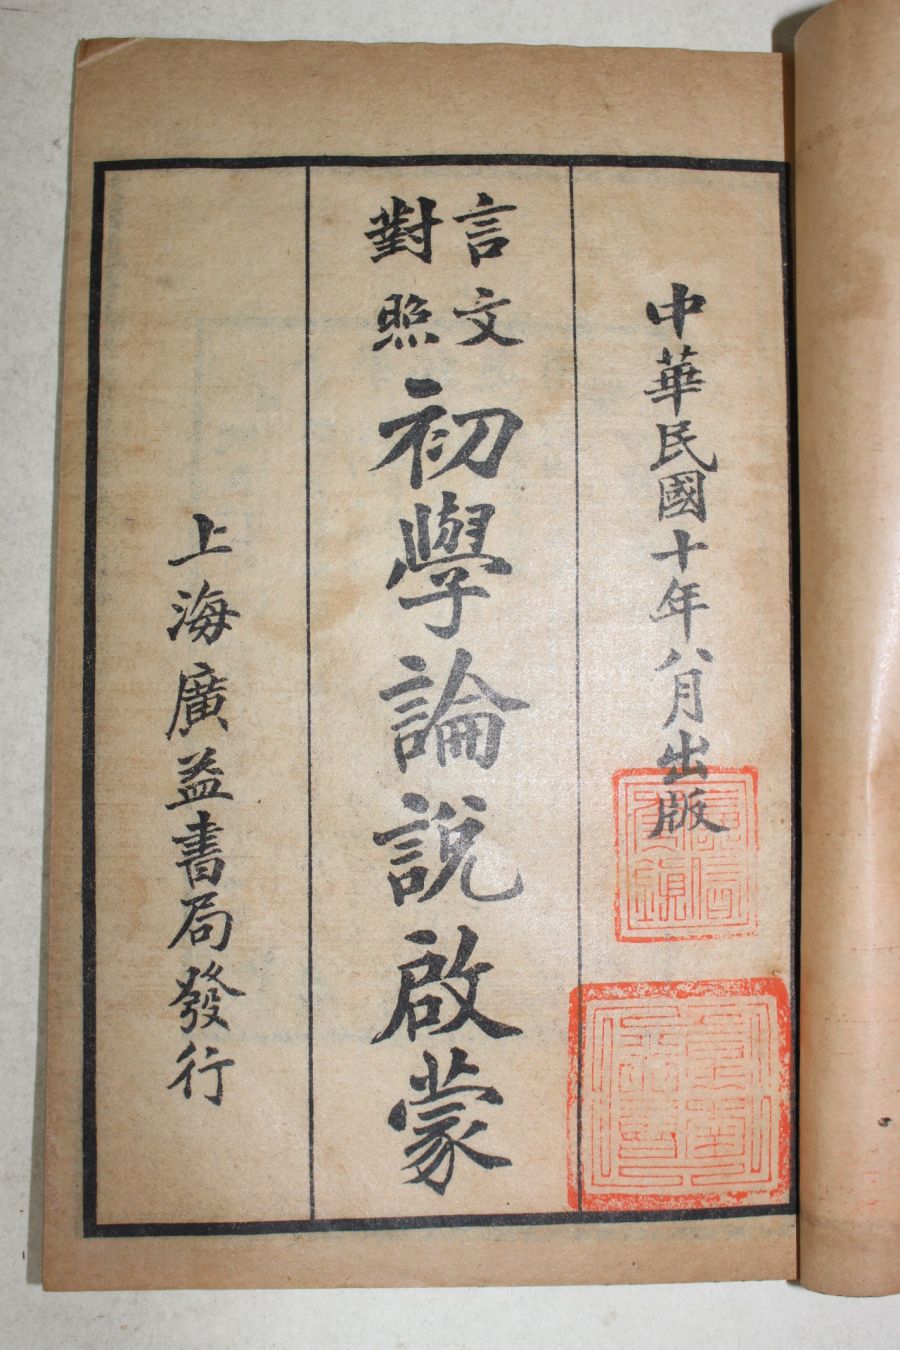 中華民國十年八月出版
言文對照
初學論說啟蒙
上海廣益書局發行